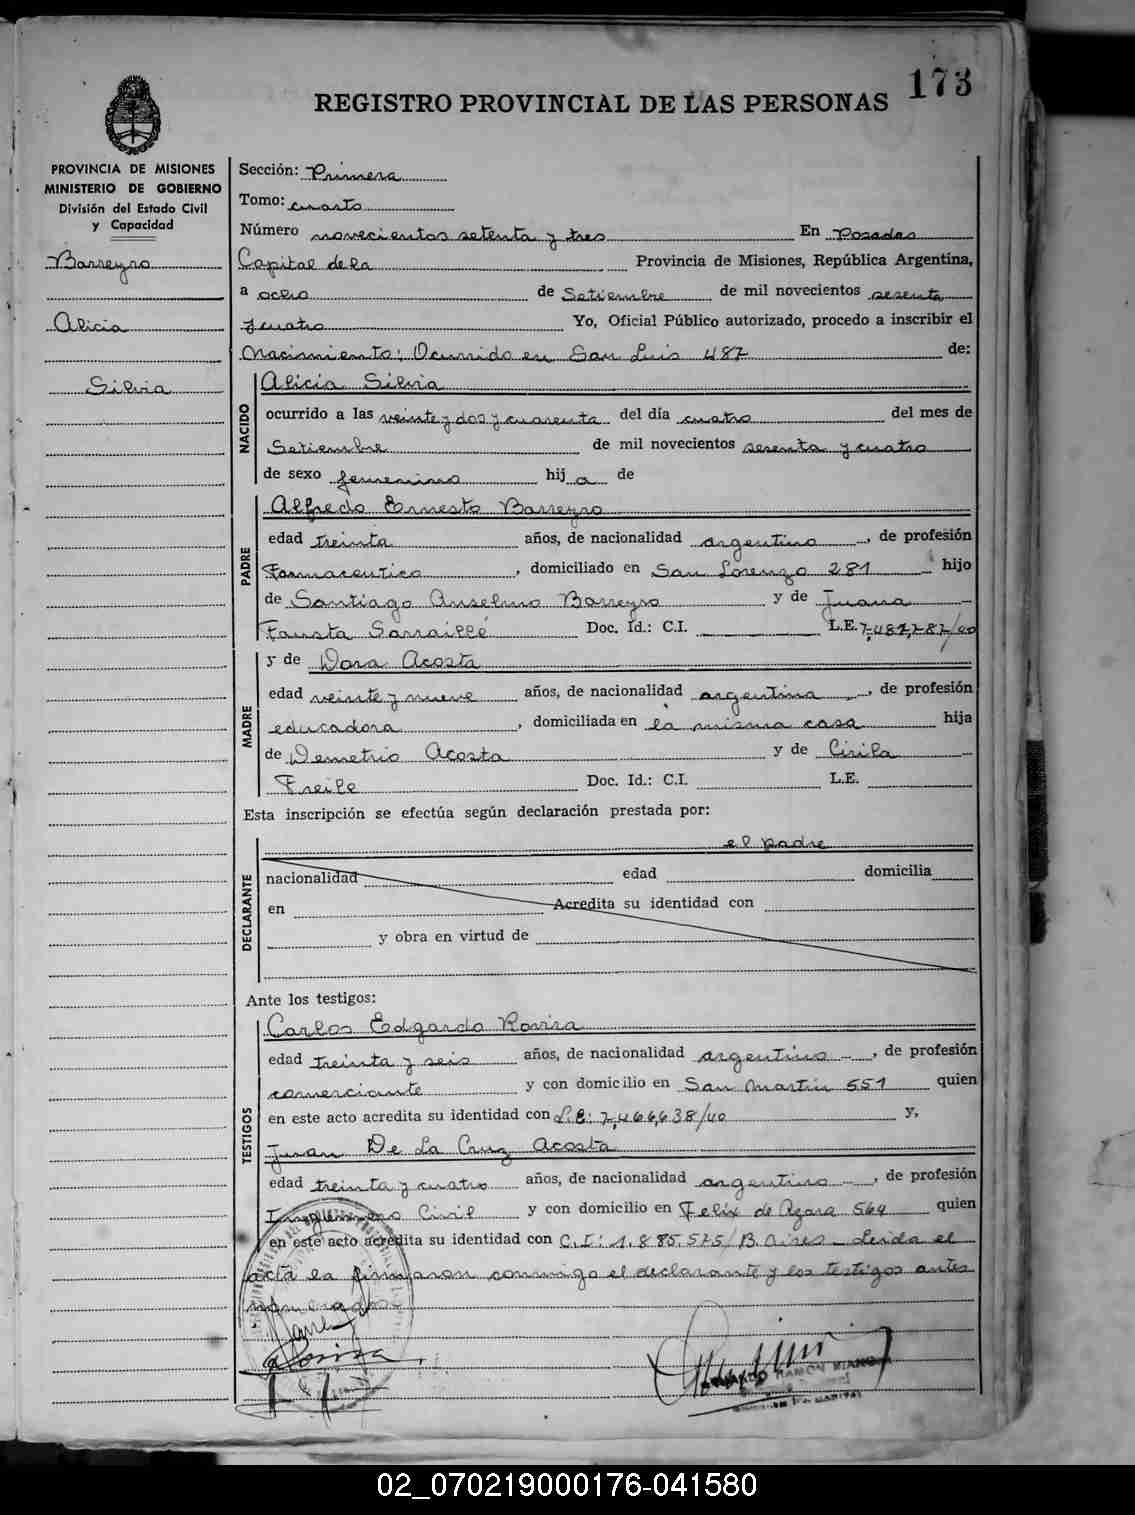 173
REGISTRO PROVINCIAL DE LAS PERSONAS
PROVINCIA DE MISIONES
MINISTERIO DE GOBIERNO
División del Estado Civil
y Capacidad
Barreyro
Alicia
Silvia
Sección: Primera
Tomo: cuarto
Número novecientos setenta y tres En Posadas
Capital de la Provincia de Misiones, República Argentina,
a ocho de Setiembre de mil novecientos sesenta
y cuatro Yo, Oficial Público autorizado, procedo a inscribir el
Nacimiento: Ocurrido en San Luis 487 de:
NACIDO
Alicia Silvia
ocurrido a las veinte y dos y cuarenta del día cuatro del mes de
Setiembre de mil novecientos sesenta y cuatro
de sexo femenino hija de
PADRE
Alfredo Ernesto Barreyro
edad treinta años, de nacionalidad argentino, de profesión
Farmaceutico, domiciliado en San Lorenzo 281 hijo
de Santiago Anselmo Barreyro y de Juana
Fausta Sarraillé Doc. Id.: C.I. L.E. 7,487,787/40
MADRE
y de Dora Acosta
edad veinte y nueve años, de nacionalidad argentina, de profesión
educadora, domiciliada en la misma casa hija
de Demetrio Acosta y de Cirila
Freile Doc. Id.: C.I. L.E.
Esta inscripción se efectúa según declaración prestada por:
DECLARANTE
el padre
nacionalidad edad domicilia
en Acredita su identidad con
y obra en virtud de
Ante los testigos:
TESTIGOS
Carlos Edgardo Rovira
edad treinta y seis años, de nacionalidad argentino, de profesión
comerciante y con domicilio en San Martin 551 quien
en este acto acredita su identidad con L.E: 7,466,638/40 y,
Juan De La Cruz Acosta
edad treinta y cuatro años, de nacionalidad argentino, de profesión
Ingeniero Civil y con domicilio en Felix de Azara 564 quien
en este acto acredita su identidad con C.I: 1.885.575/B. Aires_Leida el
acta la firmaron conmigo el declarante y los testigos antes
nombrados
Rovira
RAMON
02_070219000176-041580